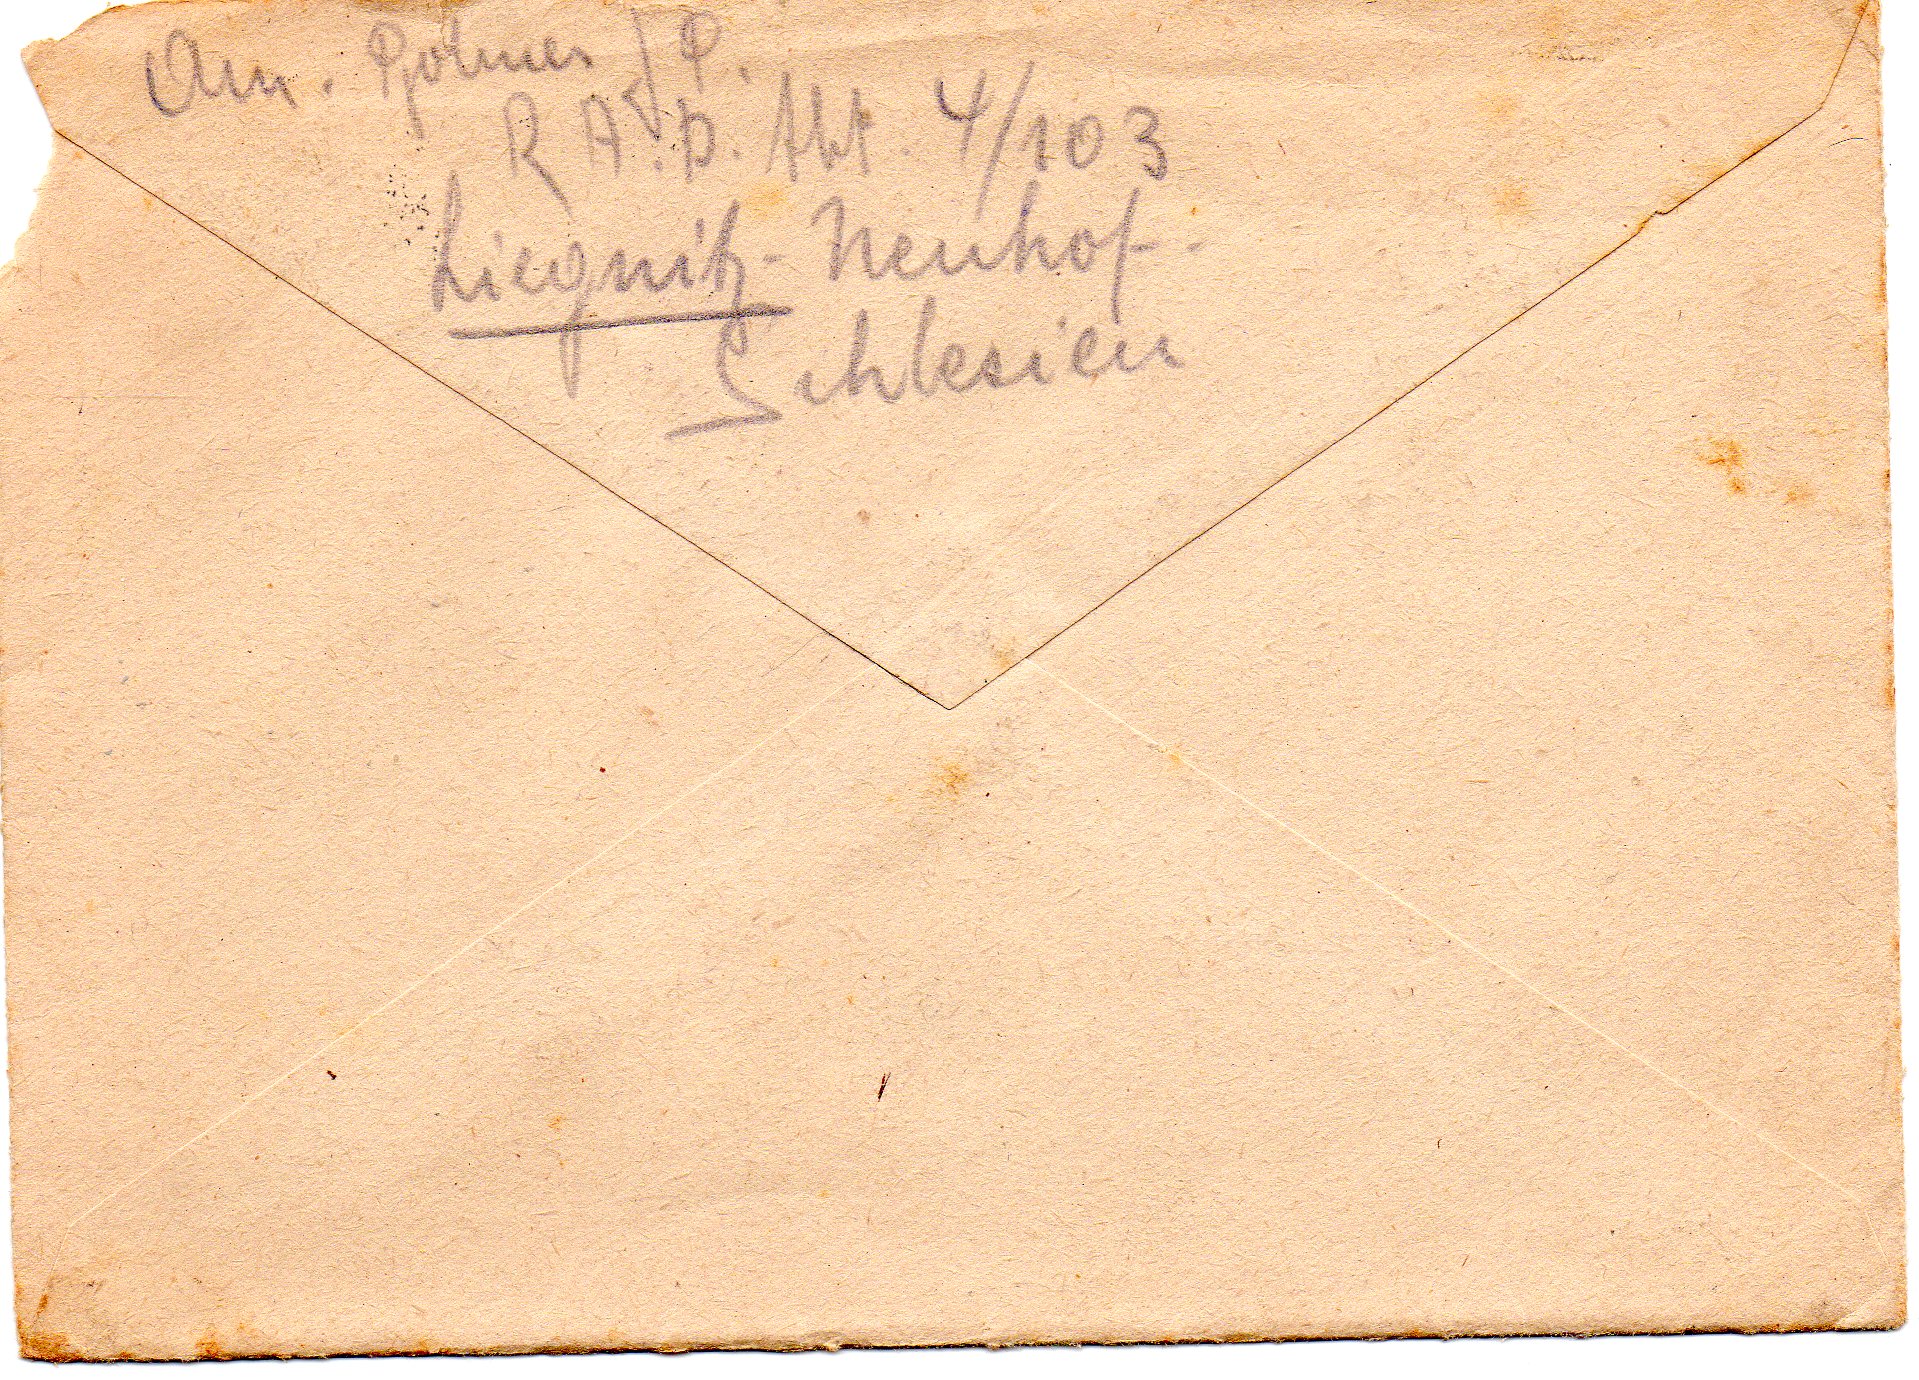 Am. J. P.
R. A. D. Abt. 4/103
Liegnitz-Neuhof-
Schlesien